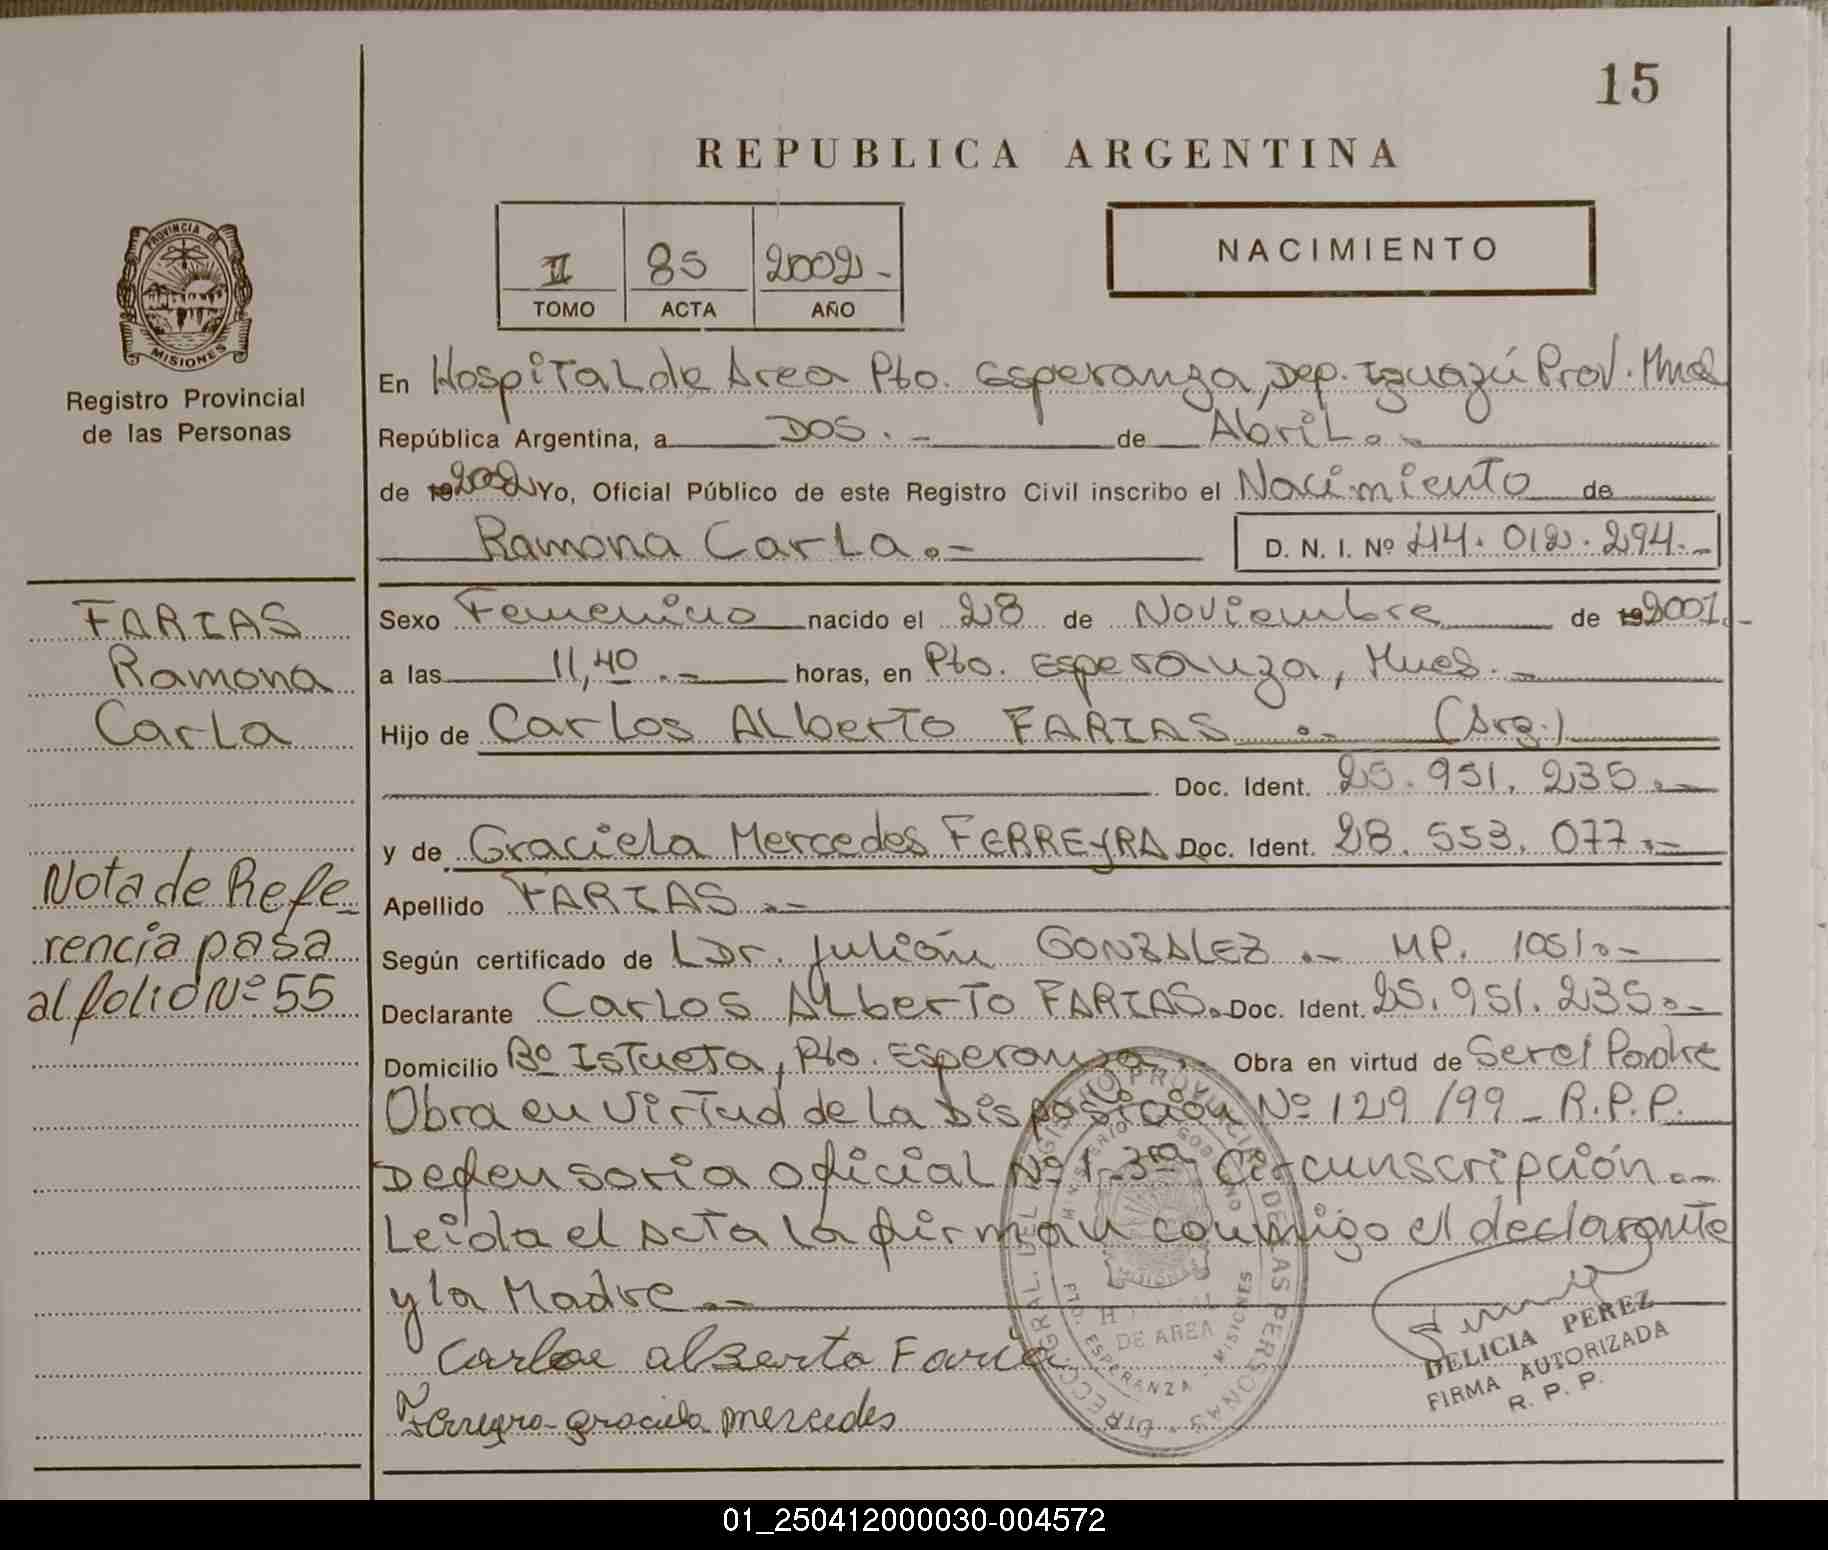 15
REPUBLICA ARGENTINA
II 85 2002 -
TOMO ACTA AÑO
NACIMIENTO
PROVINCIA DE
MISIONES
Registro Provincial
de las Personas
En Hospital de Area Pto. Esperanza, Dep. Iguazú Prov. Mnes
República Argentina, a DOS. - de Abril. -
de 19 2002 Yo, Oficial Público de este Registro Civil inscribo el Nacimiento de
Ramona Carla. - D. N. I. Nº 44. 012. 294. -
FARIAS
Ramona
Carla
Nota de Refe-
rencia pasa
al folio Nº 55
Sexo Femenino nacido el 28 de Noviembre de 19 2001. -
a las 11,40 . - horas, en Pto. Esperanza, Mnes. -
Hijo de Carlos Alberto FARIAS . - (Arg.)
Doc. Ident. 25. 951. 235. -
y de Graciela Mercedes FERREYRA Doc. Ident. 28. 553. 077. -
Apellido FARIAS . -
Según certificado de Dr. Julián GONZALEZ . - MP. 1051. -
Declarante Carlos Alberto FARIAS. Doc. Ident. 25. 951. 235. -
Domicilio Bº Istueta, Pto. Esperanza. Obra en virtud de Ser el Padre
Obra en Virtud de la Disposición Nº 129 /99 - R.P.P.
Defensoria Oficial Nº 1-3ra Circunscripción. -
Leida el Acta la firman conmigo el declarante
y la Madre . -
Carlos alberto Faria
Ferreyra - graciela mercedes
DIRECC. GRAL. DEL REGISTRO PROVINCIAL DE LAS PERSONAS
MINISTERIO GOBIERNO
DE AREA
PTO. ESPERANZA - MISIONES
DELICIA PEREZ
FIRMA AUTORIZADA
R. P. P.
01_250412000030-004572